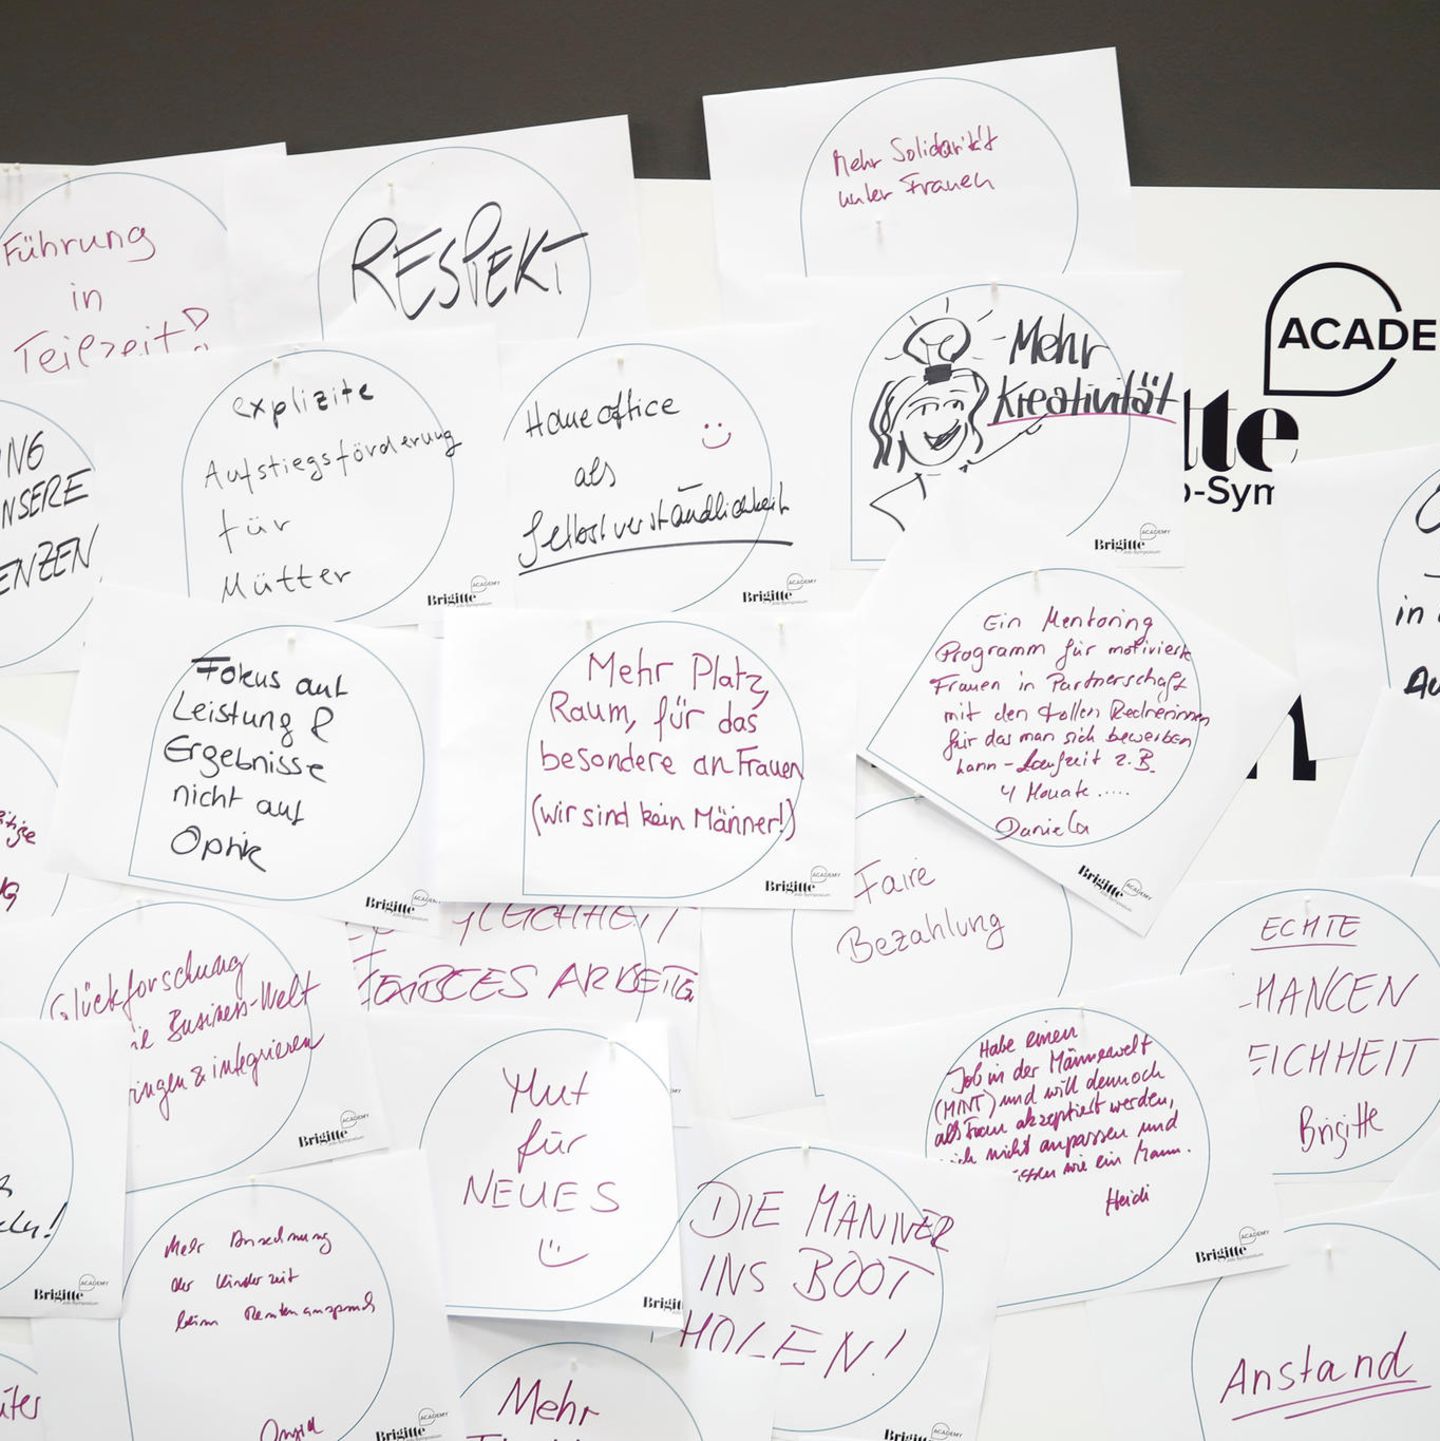 Führung
in
Teilzeit!
RESPEKT
Mehr Solidarität
unter Frauen
ACADE
tte
-Sym
NSERE
ENZEN
explizite
Aufstiegsförderung
für
Mütter
Brigitte
ACADEMY
Job-Symposium
Homeoffice
als
Selbstverständlichkeit
Brigitte
ACADEMY
Job-Symposium
Mehr
Kreativität
Brigitte
ACADEMY
Job-Symposium
in
Au
Fokus auf
Leistung &
Ergebnisse
nicht auf
Optik
Brigitte
ACADEM
Mehr Platz,
Raum, für das
besondere an Frauen
(wir sind kein Männer!)
Brigitte
ACADEMY
Job-Symposium
Ein Mentoring
Programm für motivierte
Frauen in Partnerschaft
mit den tollen Rednerinnen
für das man sich bewerben
kann - Laufzeit z.B.
4 Monate .....
Daniela
Brigitte
ACADEMY
Faire
Bezahlung
GLEICHHEIT
ARBEITEN
ECHTE
HANCEN
EICHHEIT
Brigitte
Glückforschung
ie Business-Welt
ringen & integrieren
Brigitte
ACADEMY
Job-Symposium
Mut
für
NEUES
Brigitt
Habe einen
Job in der Männerwelt
(MINT) und will dennoch
als Frau akzeptiert werden,
mich nicht anpassen und
wie ein Mann.
Heidi
Brigitte
ACADEMY
Brigitte
ACADEMY
Job-Symposium
Mehr Anrechnung
der Kinderzeit
beim Rentenanspruch
Brigitte
ACADEMY
DIE MÄNNER
INS BOOT
HOLEN!
Brigitte
ACADEMY
Mehr
Anstand